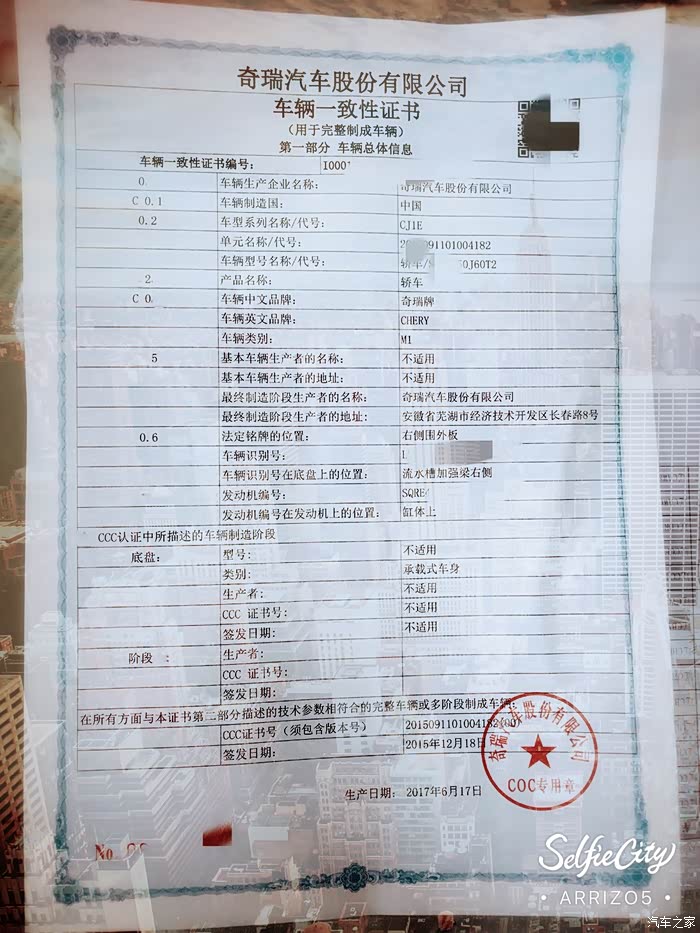 奇瑞汽车股份有限公司
车辆一致性证书
（用于完整制成车辆）
第一部分 车辆总体信息
车辆一致性证书编号： I000
0. 车辆生产企业名称： 奇瑞汽车股份有限公司
C 0.1 车辆制造国： 中国
0.2 车型系列名称/代号： CJ1E
单元名称/代号： 091101004182
车辆型号名称/代号： 轿车/ 50J60T2
2 产品名称： 轿车
C 0 车辆中文品牌： 奇瑞牌
车辆英文品牌： CHERY
车辆类别： M1
5 基本车辆生产者的名称： 不适用
基本车辆生产者的地址： 不适用
最终制造阶段生产者的名称： 奇瑞汽车股份有限公司
最终制造阶段生产者的地址： 安徽省芜湖市经济技术开发区长春路8号
0.6 法定铭牌的位置： 右侧围外板
车辆识别号：
车辆识别号在底盘上的位置： 流水槽加强梁右侧
发动机编号： SQRE
发动机编号在发动机上的位置： 缸体上
CCC认证中所描述的车辆制造阶段
底盘： 型号： 不适用
类别： 承载式车身
生产者： 不适用
CCC 证书号： 不适用
签发日期： 不适用
阶段 ： 生产者：
CCC 证书号：
签发日期：
在所有方面与本证书第二部分描述的技术参数相符合的完整车辆或多阶段制成车辆：
CCC证书号（须包含版本号） 2015091101004182(00)
签发日期： 2015年12月18日
奇瑞汽车股份有限公司
COC专用章
生产日期： 2017年6月17日
No
SelfieCity
• ARRIZO5 •
汽车之家